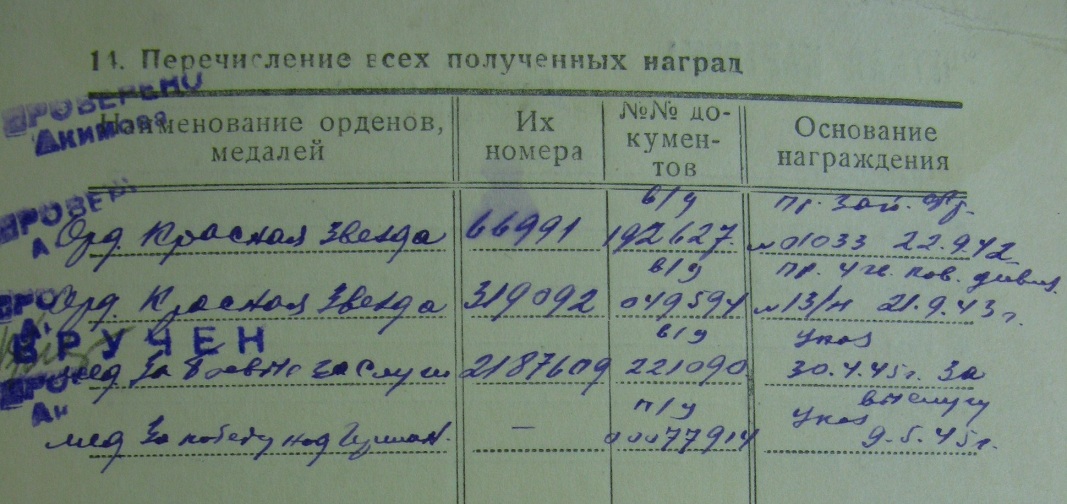 11. Перечисление всех полученных наград
ПРОВЕРЕНО
Акимова
Наименование орденов, медалей
Их номера
№№ документов
Основание награждения
ПРОВЕРЕ
А
Орд. Красная Звезда 66991 в/у 192627. пр. Зап. фр. №01033 22.9.42
Орд. Красная Звезда 319092 в/у 049594 пр. 4 гв. ... дивиз. №13/н 21.9.43 г.
ПРО
А
ВРУЧЕН
мед За боевые заслуги 2187609 в/у 221090 указ 30.4.45 г. За выслугу
ПРО
Ак
мед За победу над Герман. — п/у 0077914 указ 9.5.45 г.